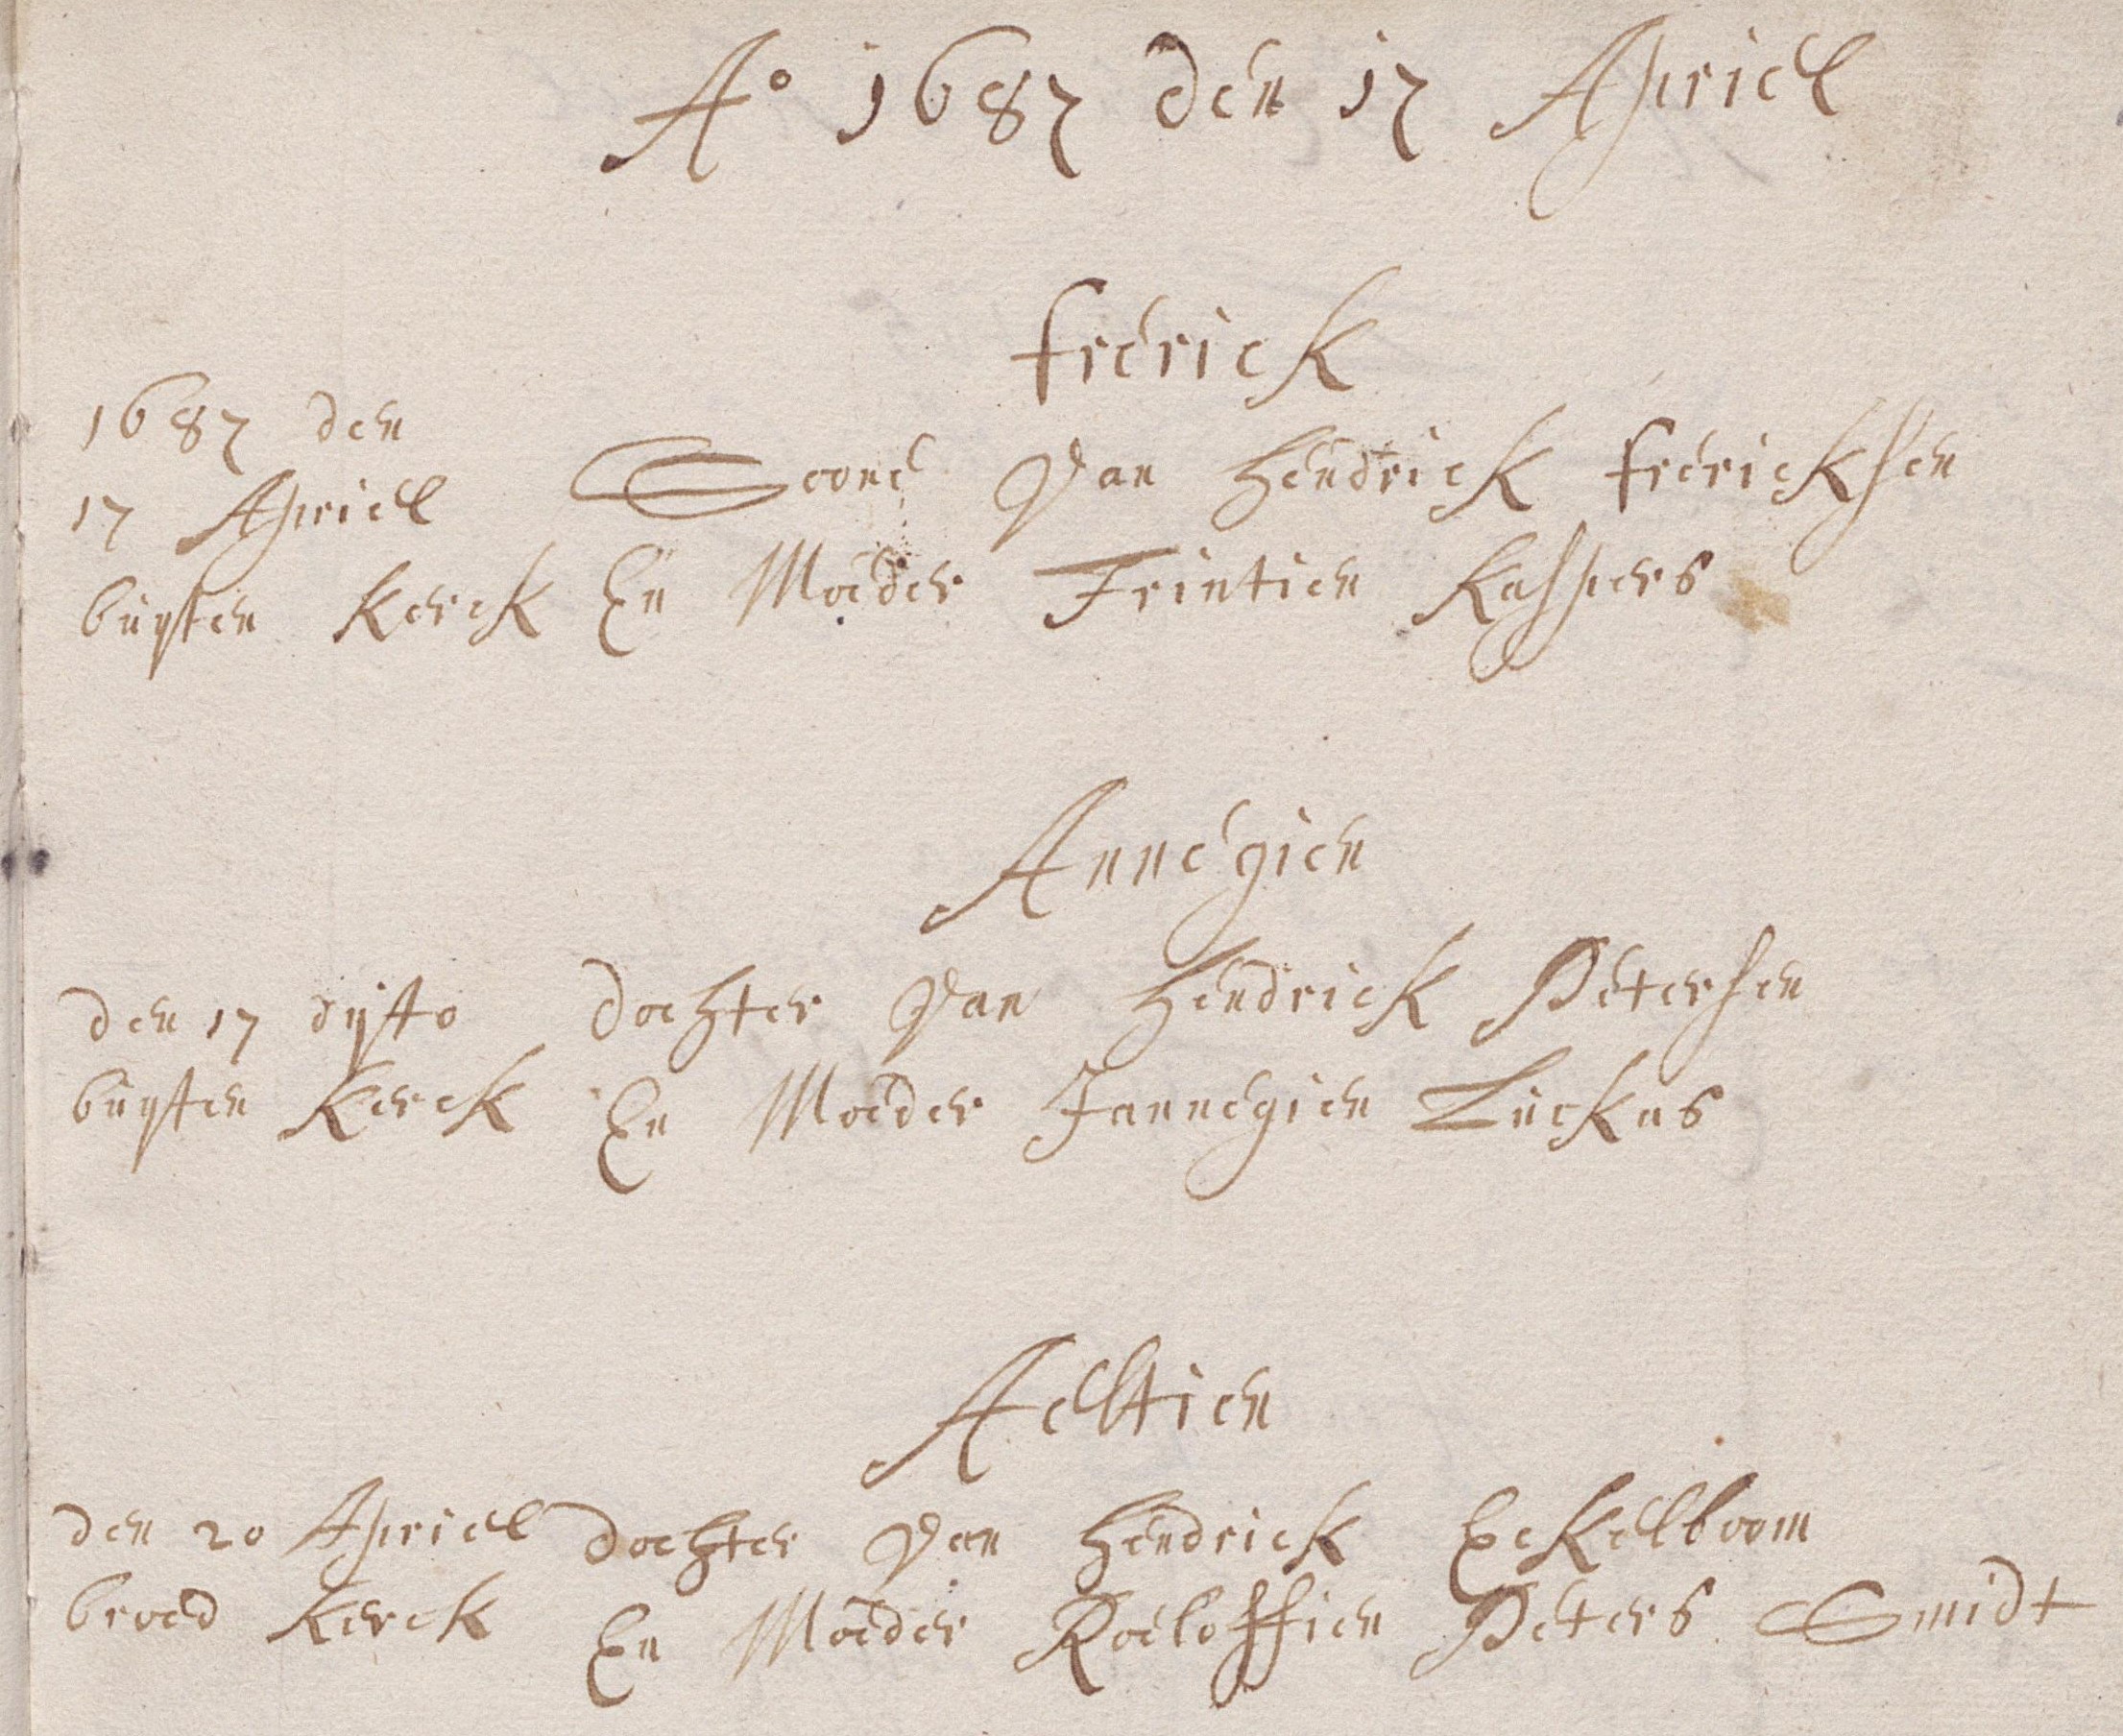 Ao 1687 den 17 Apriel
fredrick
1687 den
17 Apriel
buyten Kerck
Soone van Hendrick fredricksen
En Moeder Trintien Kaspers
Annegien
den 17 dysto
buyten Kerck
dochter van Hendrick Petersen
En Moeder Jannegien Luckas
Aeltien
den 20 Apriel
broed Kerck
dochter van Hendrick Eckelboom
En Moeder Roeloffien Peters Smidt